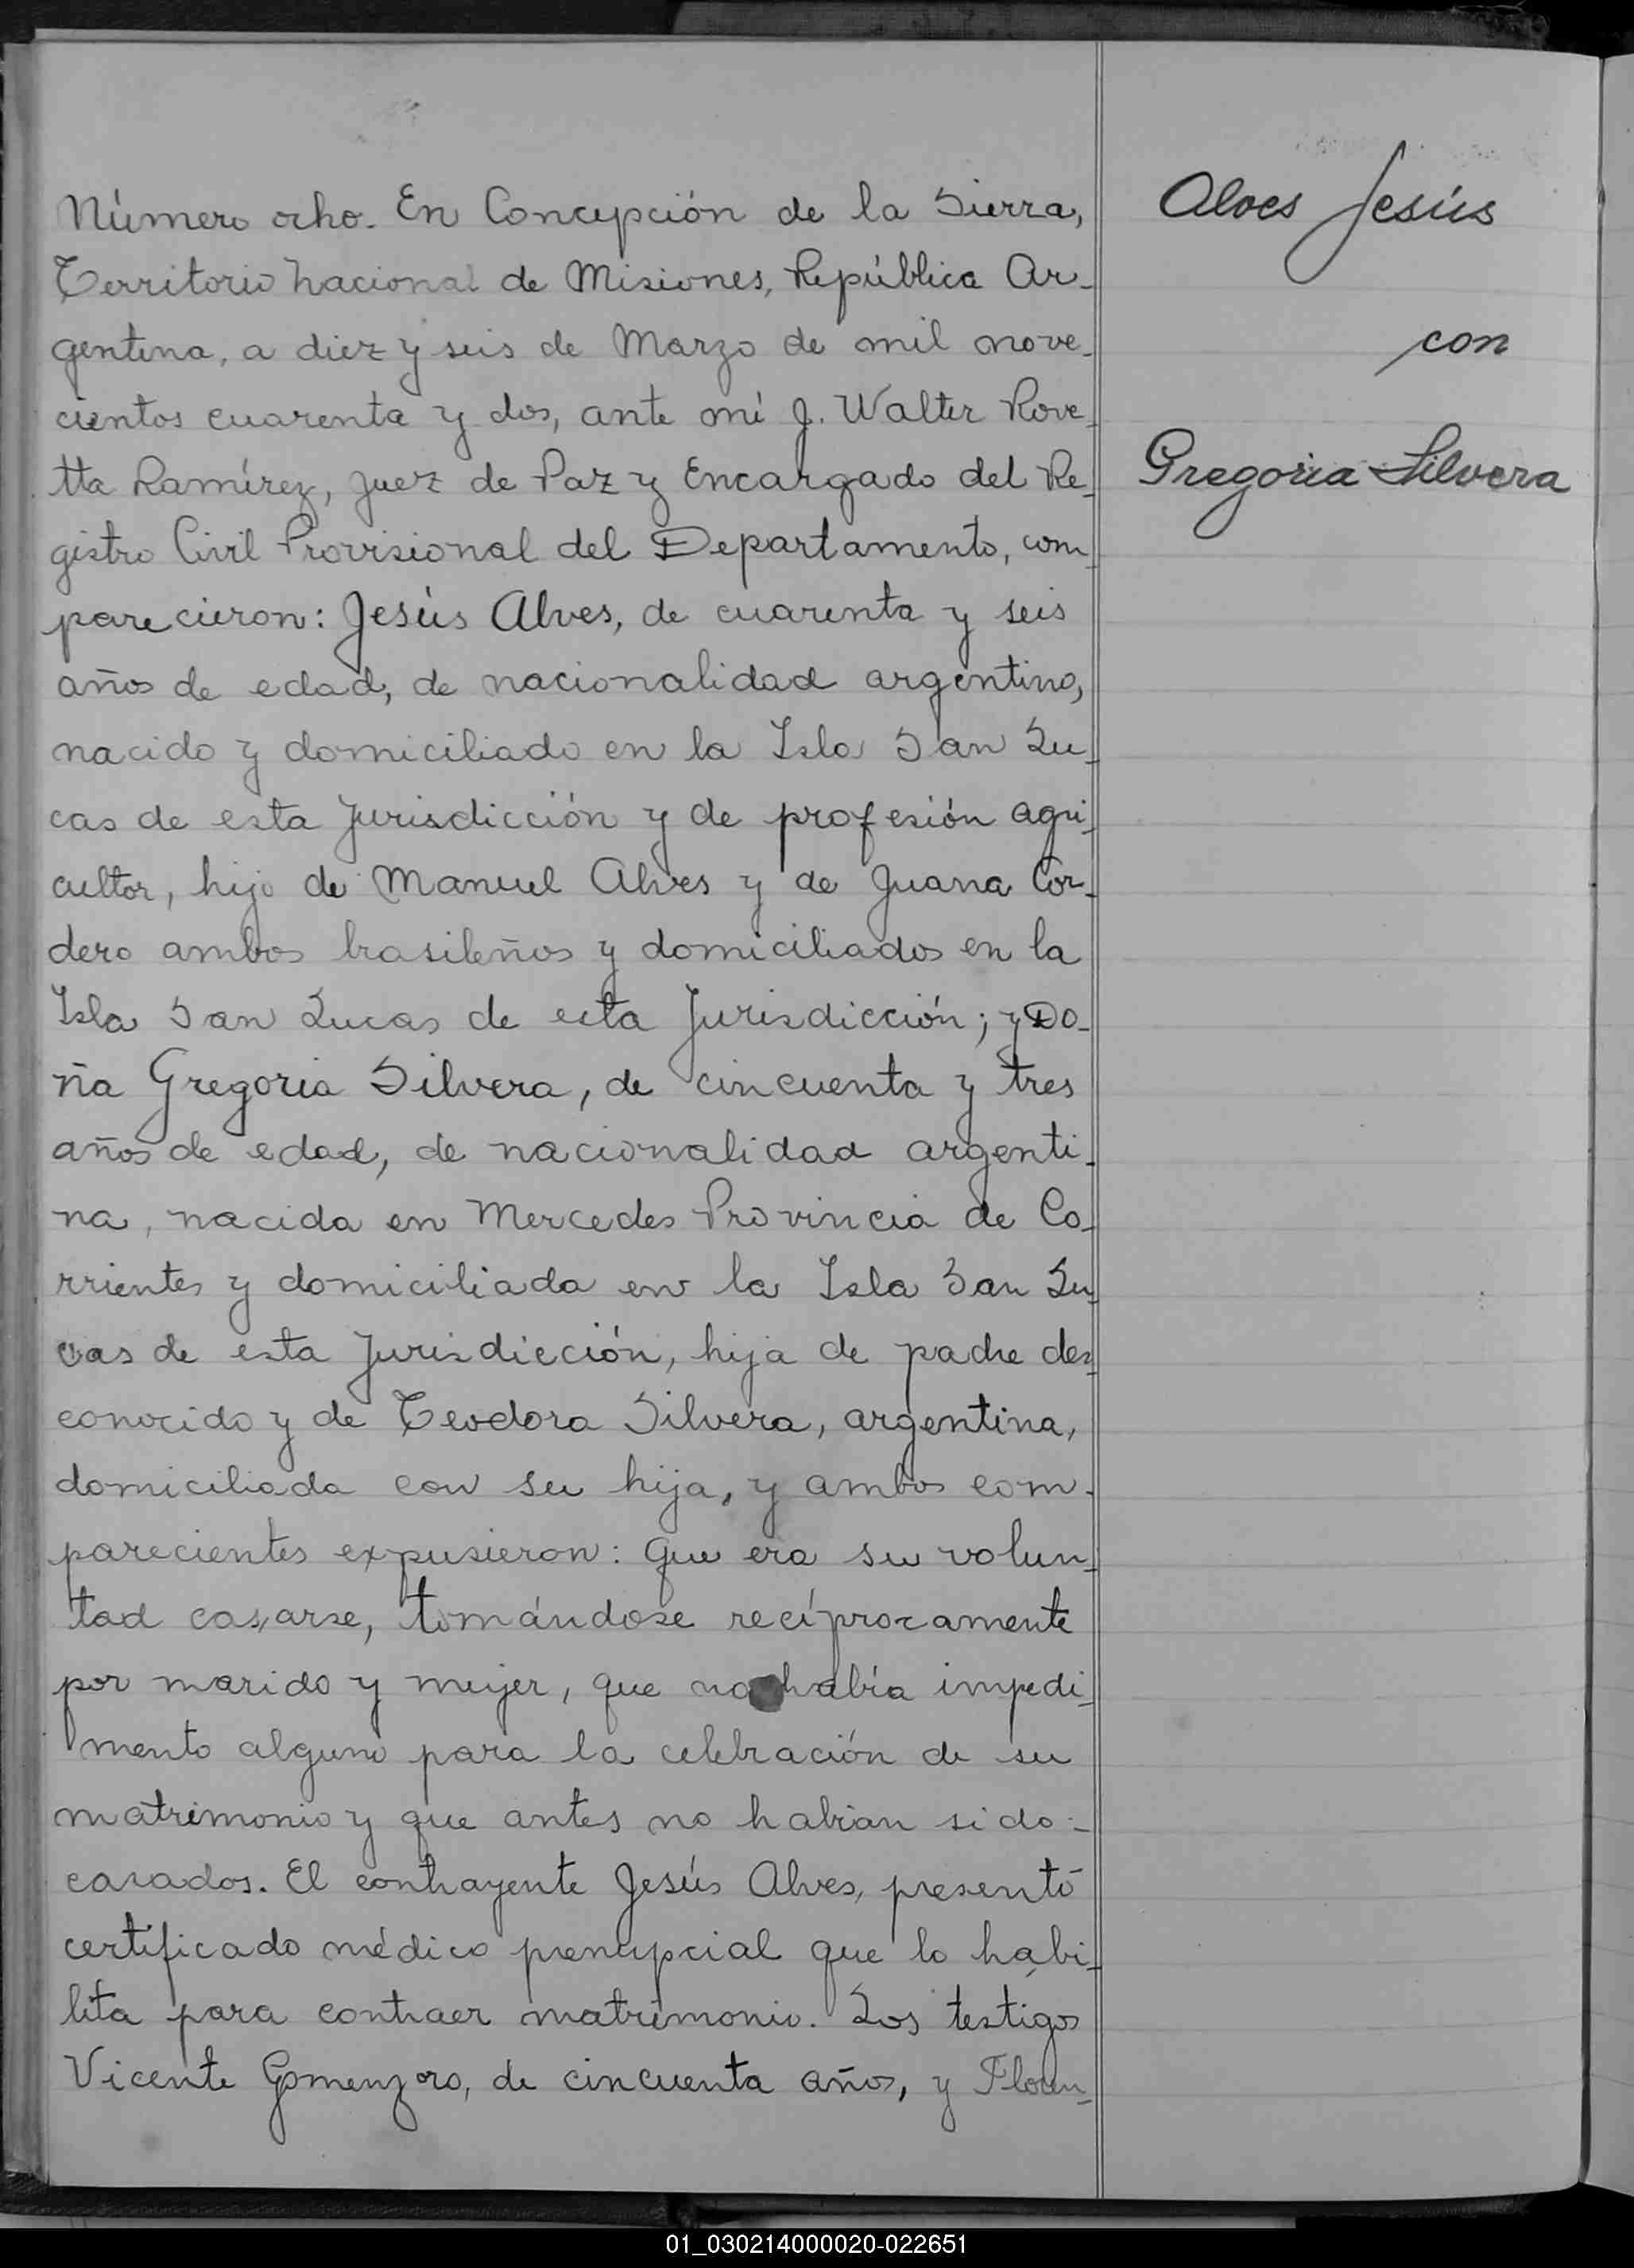 Número ocho. En Concepción de la Sierra,
Territorio Nacional de Misiones, República Ar-
gentina, a diez y seis de Marzo de mil nove-
cientos cuarenta y dos, ante mí J. Walter Rove-
tta Ramírez, Juez de Paz y Encargado del Re-
gistro Civil Provisional del Departamento, com-
parecieron: Jesús Alves, de cuarenta y seis
años de edad, de nacionalidad argentino,
nacido y domiciliado en la Isla San Lu-
cas de esta Jurisdicción y de profesión agri-
cultor, hijo de Manuel Alves y de Juana Cor-
dero ambos brasileños y domiciliados en la
Isla San Lucas de esta Jurisdicción; y Do-
ña Gregoria Silvera, de cincuenta y tres
años de edad, de nacionalidad argenti-
na, nacida en Mercedes Provincia de Co-
rrientes y domiciliada en la Isla San Lu-
cas de esta Jurisdicción, hija de padre des-
conocido y de Teodora Silvera, argentina,
domiciliada con su hija, y ambos com-
parecientes expusieron: que era su volun-
tad casarse, tomándose recíprocamente
por marido y mujer, que no había impedi-
mento alguno para la celebración de su
matrimonio y que antes no habían sido-
casados. El contrayente Jesús Alves, presentó
certificado médico prenupcial que lo habi-
lita para contraer matrimonio. Los testigos
Vicente Gomenzoro, de cincuenta años, y Floren-
Alves Jesús
con
Gregoria Silvera
01_030214000020-022651